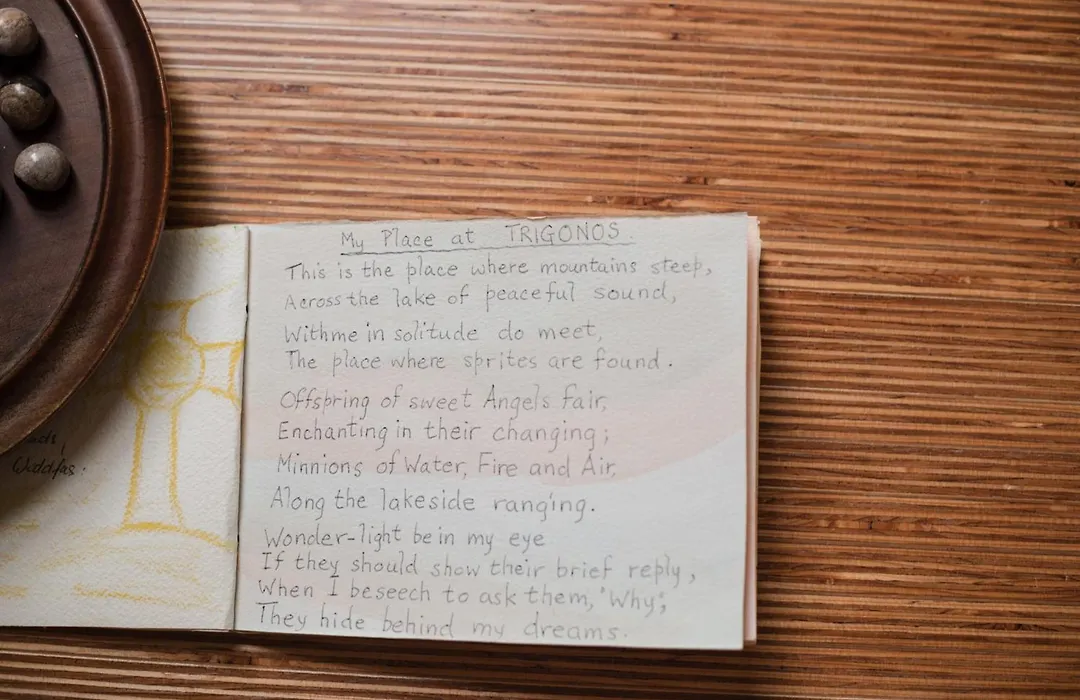 My Place at TRIGONOS.
This is the place where mountains steep,
Across the lake of peaceful sound,
With me in solitude do meet,
The place where sprites are found.
Offspring of sweet Angels fair,
Enchanting in their changing;
Minnions of Water, Fire and Air,
Along the lakeside ranging.
Wonder-light be in my eye
If they should show their brief reply,
When I beseech to ask them, 'Why';
They hide behind my dreams.